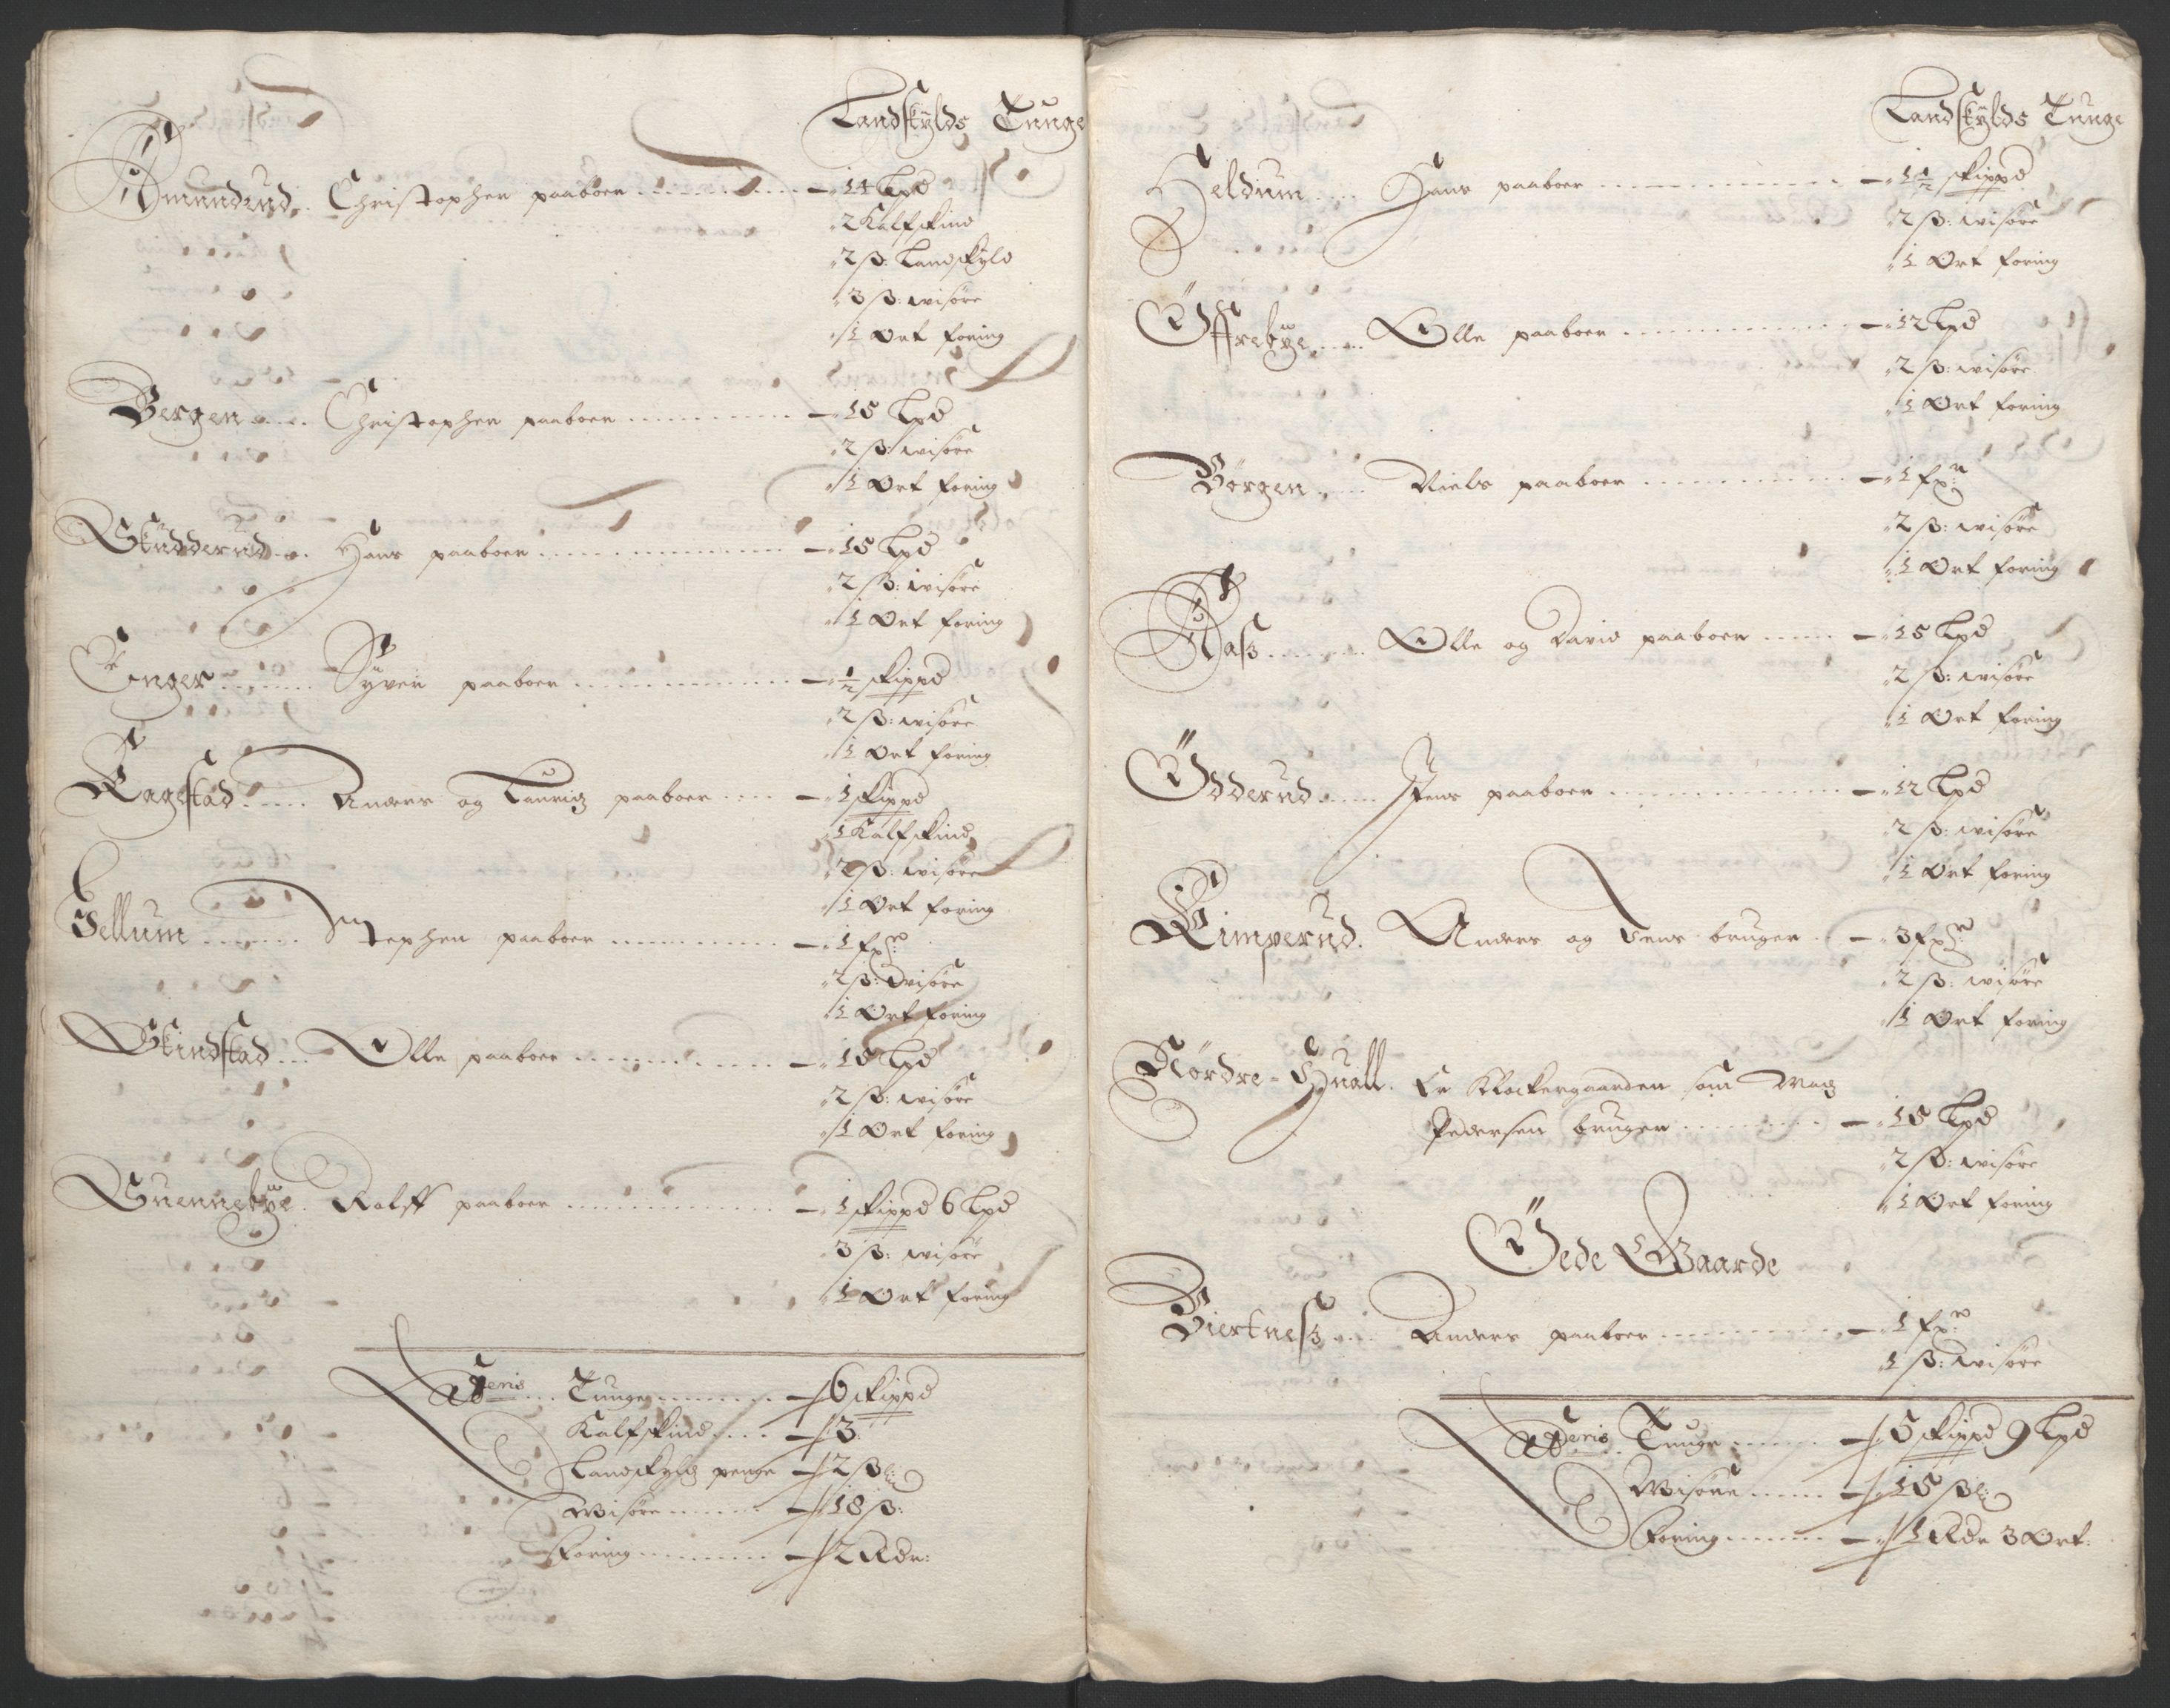 Landskylds Tunge
Amundrud. Christopher paaboer ........ 14 Lpd
2 Kalfskind
2 ß: Landskyld
3 ß: wisöre
1 Ort foring
Bergen .... Christopher paaboer ........ 15 Lpd
2 ß: wisöre
1 Ort foring
Skudderud .. Hans paaboer ........ 15 Lpd
2 ß: wisöre
1 Ort foring
Enger ...... Syver paaboer ........ ½ skippd
2 ß: wisöre
1 Ort foring
Ragestad .... Anders og Lauritz paaboer .... 1 skippd
1 Kalfskind
2 ß: wisöre
1 Ort foring
Tellum ...... Stephen paaboer ........ 1 fxr:
2 ß: wisöre
1 Ort foring
Skindstad ... Olle paaboer ........ 15 Lpd
2 ß: wisöre
1 Ort foring
Suennebye. Rolff paaboer ........ 1 skippd 6 Lpd
3 ß: wisöre
1 Ort foring
Tunge ........ 6 skippd
Kalfskind .... 3
Landskyldz penge 2 ß
Wisöre ...... 18 ß:
Foring ........ 2 Rdr:
Landskylds Tunge
Heldum .... Hans paaboer ........ 1½ skippd
2 ß: wisöre
1 Ort foring
Offrebye ..... Olle paaboer ........ 12 Lpd
2 ß: wisöre
1 Ort foring
Börgen .... Niels paaboer ........ 1 fxr:
2 ß: wisöre
1 Ort foring
Aaß ...... Olle og David paaboer .... 15 Lpd
2 ß: wisöre
1 Ort foring
Odderud .... Jens paaboer ........ 12 Lpd
2 ß: wisöre
1 Ort foring
Rimperud. Anders og Jens bruger .. 3 fxr:
2 ß: wisöre
1 Ort foring
Nördre-Huall. Er Klockergaarden som Madz
Pedersen bruger ........ 15 Lpd
2 ß: wisöre
1 Ort foring
Öede Gaarde
Biertneß .... Anders paaboer ........ 1 fxr:
1 ß: wisöre
Tunge ...... 5 skippd 9 Lpd
Wisöre ..... 15 ß
Foring ...... 1 Rdr 3 Ort: